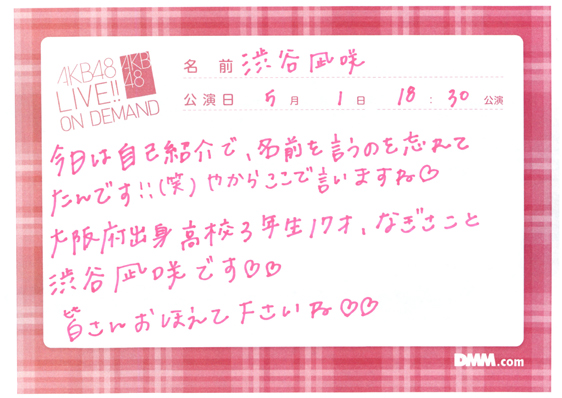 AKB48
LIVE!!
ON DEMAND
AKB
48
名前 渋谷凪咲
公演日 5月 1日 18:30公演
今日は自己紹介で、名前を言うのを忘れて
たんです!!(笑) やからここで言いますね♡
大阪府出身高校3年生17才、なぎさこと
渋谷凪咲です♡♡
皆さんおぼえて下さいね♡♡
DMM.com